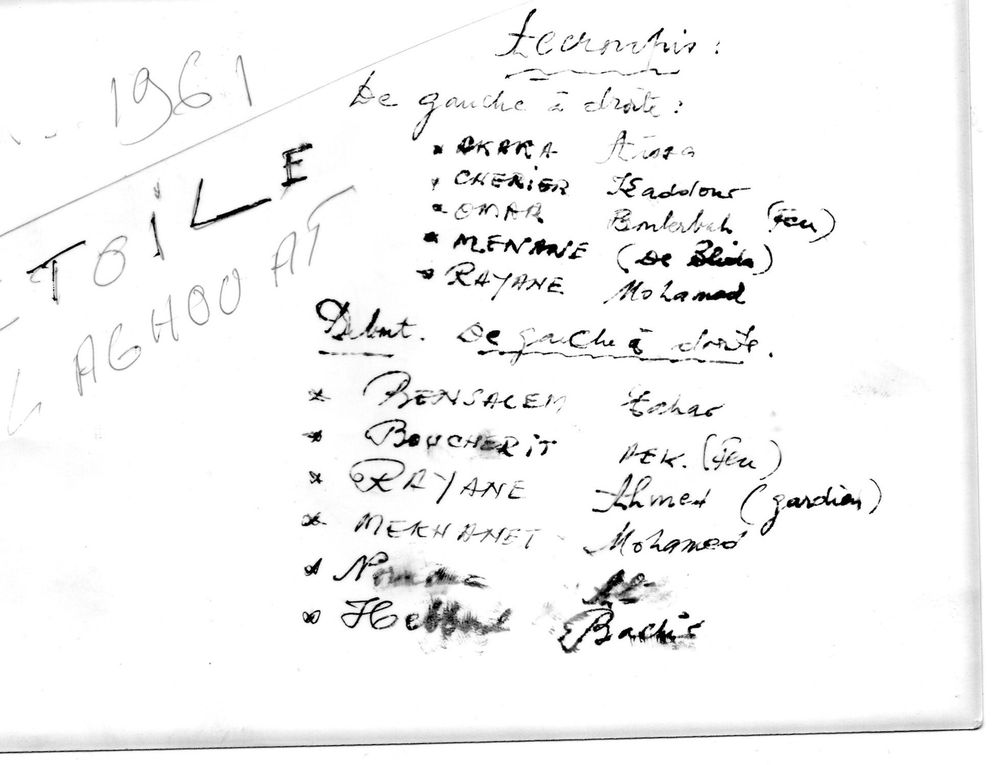 1961
ETOILE
LAGHOUAT
Accroupis :
De gauche à droite :
* AKARA Aissa
* CHERIER Kaddour
* OMAR Bouterbah (feu)
* MENANE (De Blida)
* RAYANE Mohamed
Debout. De gauche à droite.
* BENSALEM Tahar
* BOUCHERIT AEK. (feu)
* RAYANE Ahmed (gardien)
* MEKHANET Mohamed
* Bachir